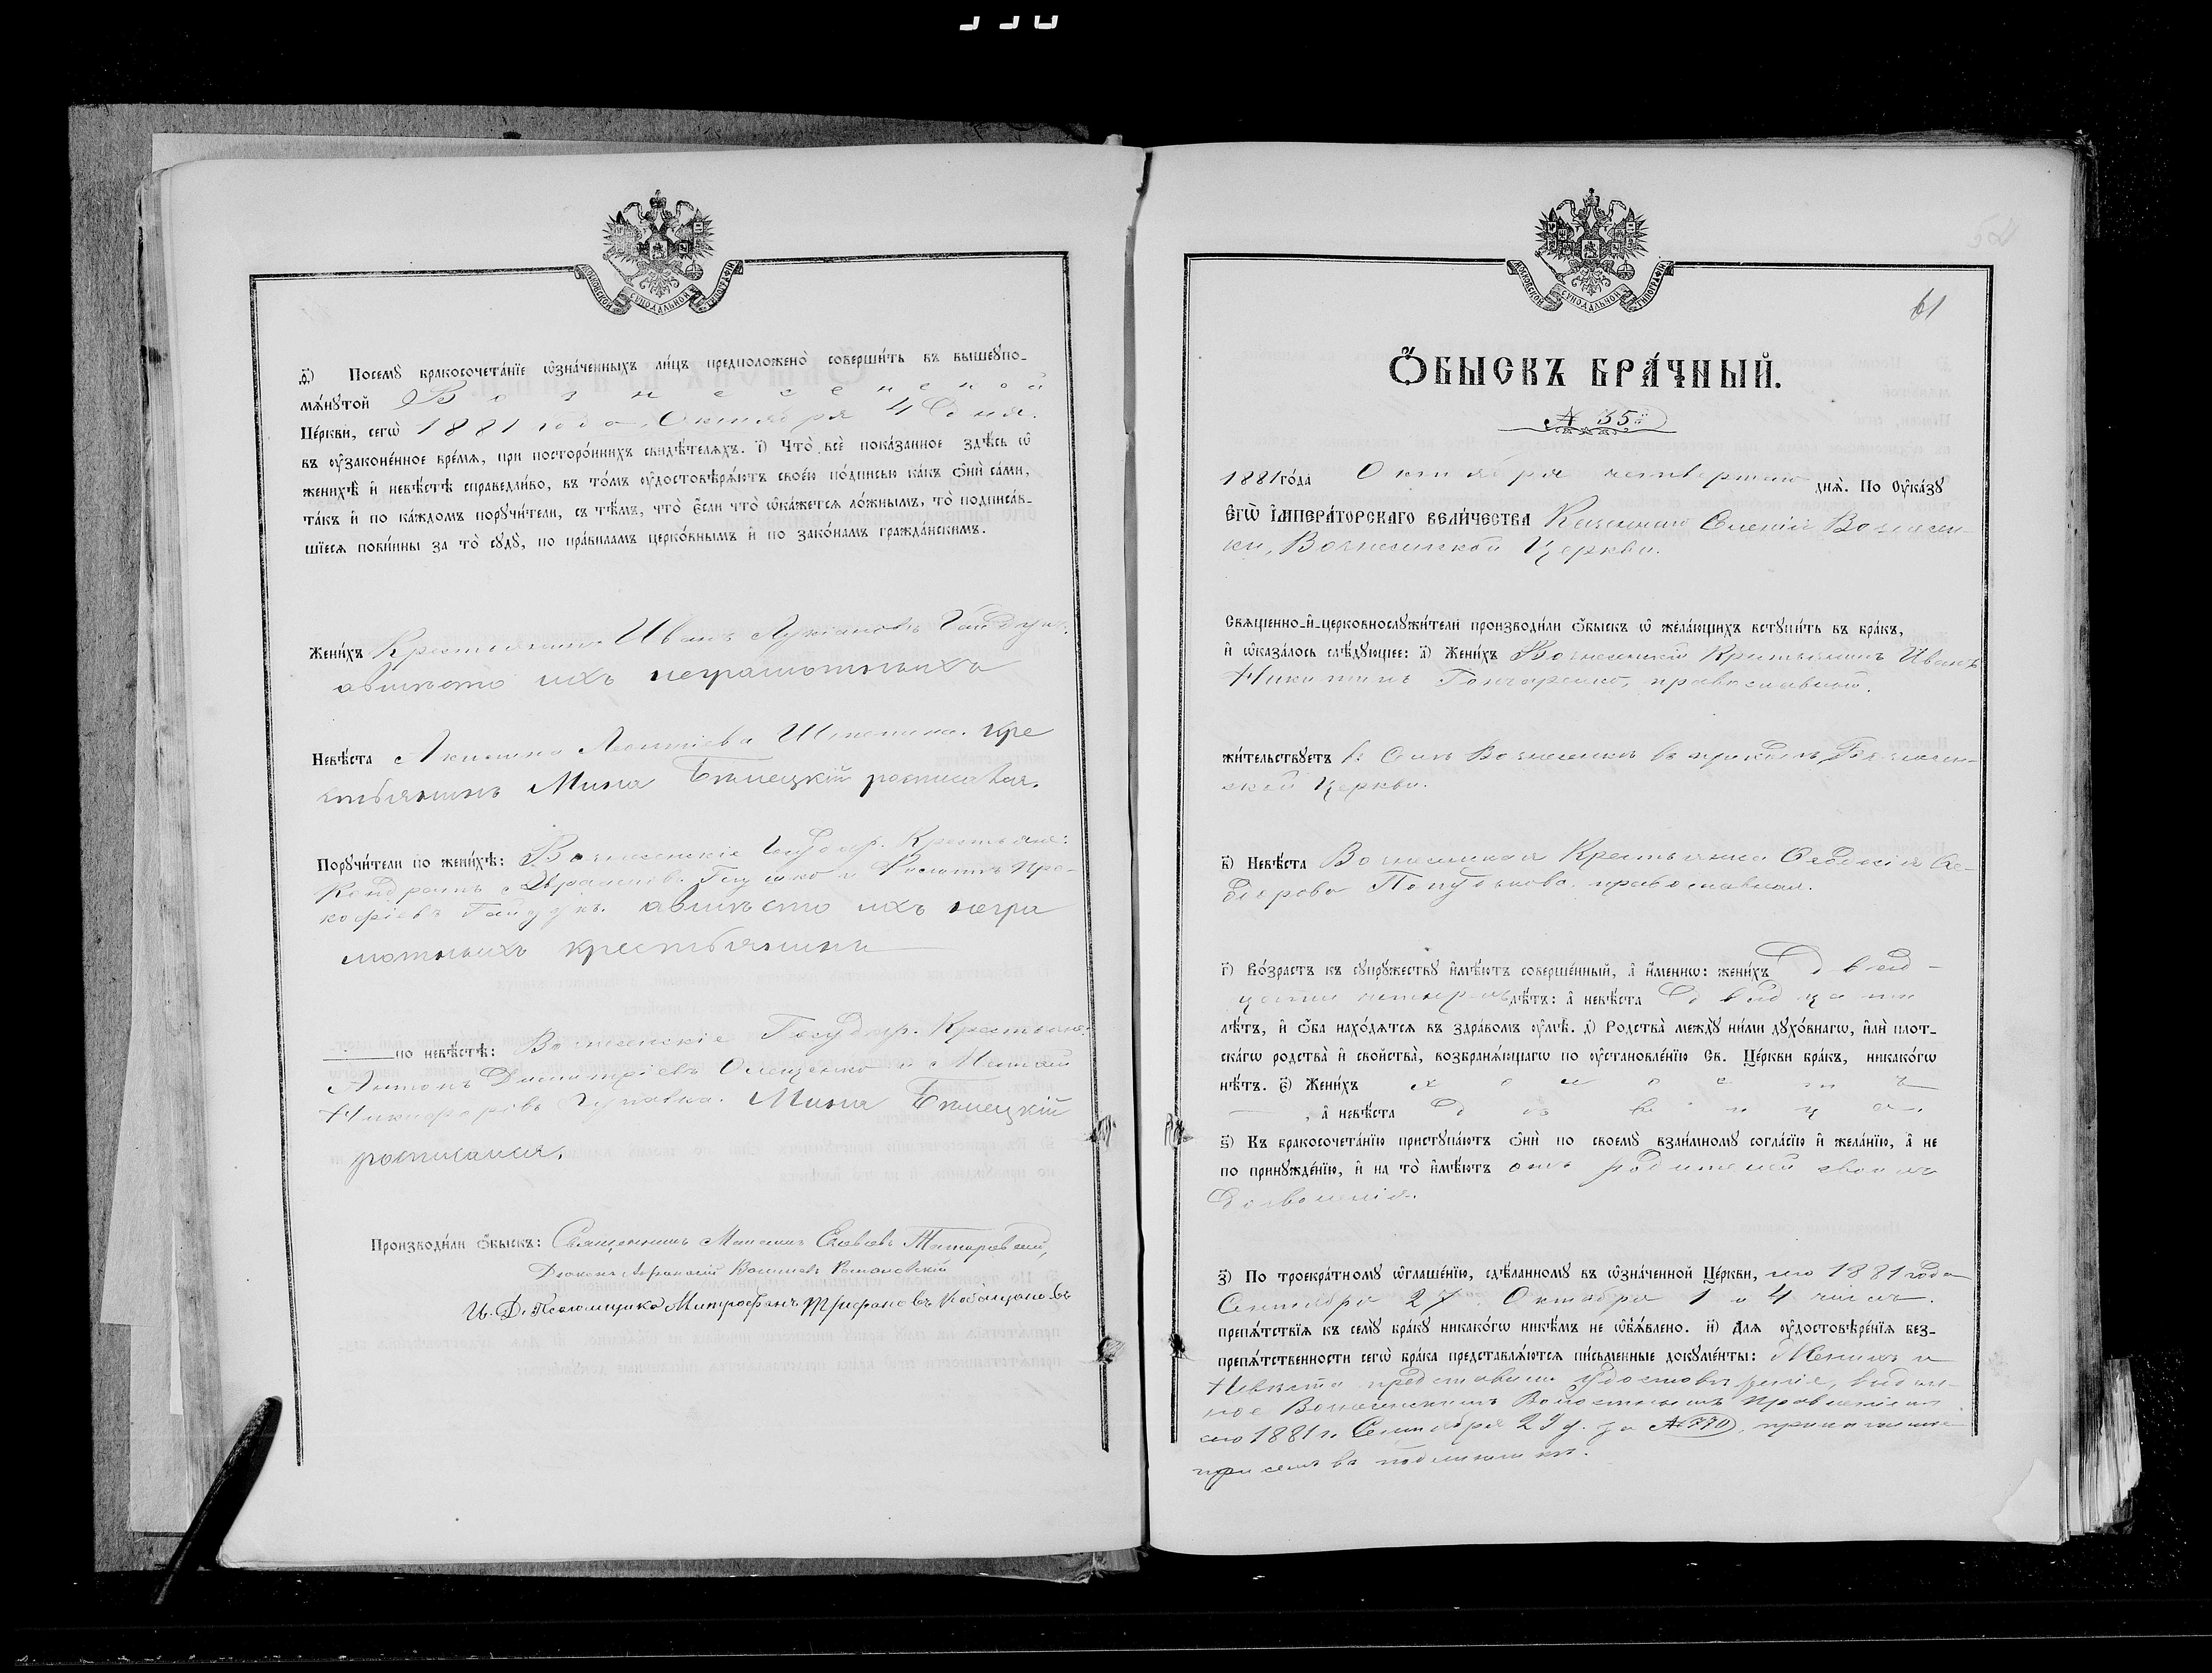 МОСКОВСКОЙ СУНОДАЛЬНОЙ ТИПОГРАФІИ
ѳ҃) Посемꙋ бракосочета́нїе ѡ҆зна́ченныхъ ли́цъ предположено̀ соверши́ть въ вышеꙋпо-
мѧ́нꙋтой Вознесенской
Це́ркви, сегѡ̀ 1881 года Октября 4 дня.
въ ᲂу҆зако́ненное вре́мѧ, при посторо́ннихъ свидѣ́телѧхъ. і҃) Что̀ всѐ пока́занное здѣ́сь ѡ҆
женихѣ̀ и҆ невѣ́стѣ справедли́во, въ то́мъ ᲂу҆достовѣрѧ́ютъ свое́ю по́дписью ка́къ ѻ҆нѝ са́ми,
та́къ и҆ по ка́ждомъ порꙋчи́тели, съ тѣ́мъ, что̀ є҆́сли что̀ ѡ҆ка́жетсѧ ло́жнымъ, то̀ подписа́в-
шїесѧ пови́нны за то̀ сꙋдꙋ̀, по пра́виламъ церко́внымъ и҆ по зако́намъ гражда́нскимъ.
Жени́хъ Крестьянинъ Иванъ Лукіановъ Гайдукъ.
авмѣсто ихъ неграмотныхъ
Невѣ́ста Акилина Леонтіева кре
стьянинъ Мина Бѣлецкій росписался.
Порꙋчи́тели по женихѣ̀: Вознесенскіе Государ. Крестьяне:
Кондратъ Глушко и Филипъ Про-
кофіевъ Гайдукъ. авмѣсто ихъ негра
мотныхъ крестьянинъ
по невѣ́стѣ: Вознесенскіе Государ. Крестьяне:
Антонъ Димитріевъ Онищенко и
Никифоровъ Мина Бѣлецкій
росписался.
Производи́ли ѻ҆́быскъ: Священникъ
Діаконъ Романовскій
И. Д. Псаломщика Митрофанъ Трифановъ
МОСКОВСКОЙ СУНОДАЛЬНОЙ ТИПОГРАФІИ
61
Ѻ҆́БЫСКЪ БРА́ЧНЫЙ.
№ 35й
1881 го́да Октября четвертаго днѧ̀. По ᲂу҆ка́зꙋ
Є҆ГѠ̀ И҆МПЕРА́ТОРСКАГО ВЕЛИ́ЧЕСТВА Казеннаго Селенія Вознесен-
ки, Вознесенской Церкви.
Свѧще́нно-и҆-церковнослꙋжи́тели производи́ли ѻ҆́быскъ ѡ҆ жела́ющихъ встꙋпи́ть въ бра́къ,
и҆ ѡ҆каза́лось слѣ́дꙋющее: а҃) Жени́хъ Вознесенскій Крестьянинъ Иванъ
Никитинъ Гончаренко, православный.
жи́тельствꙋетъ въ Селѣ Вознесенкѣ въ приходѣ Вознесен-
ской Церкви.
в҃) Невѣ́ста Вознесенская Крестьянка Ѳедосія Ѳе-
дорова православная.
г҃) Во́зрастъ къ сꙋпрꙋ́жествꙋ и҆мѣ́ютъ соверше́нный, а҆ и҆́меннѡ: жени́хъ двад-
цати четырехъ лѣ́тъ: а҆ невѣ́ста двадцати
лѣ́тъ, и҆ ѻ҆́ба нахо́дѧтсѧ въ здра́вомъ ᲂу҆мѣ̀. д҃) Родства̀ междꙋ̀ ни́ми дꙋхо́внагѡ, и҆лѝ плот-
ска́гѡ родства̀ и҆ сво́йства, возбранѧ́ющагѡ по ᲂу҆становле́нїю Св. Це́ркви бра́къ, никако́гѡ
нѣ́тъ. є҃) Жени́хъ холостъ
, а҆ невѣ́ста дѣвица.
ѕ҃) Къ бракосочета́нїю пристꙋпа́ютъ ѻ҆нѝ по своемꙋ̀ взаи́мномꙋ согла́сїю и҆ жела́нїю, а҆ не
по принꙋжде́нїю, и҆ на то̀ и҆мѣ́ютъ отъ родителей своихъ
дозволенія.
з҃) По троекра́тномꙋ ѡ҆глаше́нїю, сдѣ́ланномꙋ въ ѡ҆зна́ченной Це́ркви, сего 1881 года
Сентября 27. Октября 1 и 4 числъ.
препѧ́тствїѧ къ семꙋ̀ бра́кꙋ никако́гѡ никѣ́мъ не ѡ҆б̾ѧ́влено. и҃) Длѧ ᲂу҆достовѣре́нїѧ без-
препѧ́тственности сегѡ̀ бра́ка представлѧ́ютсѧ пи́сьменные докꙋме́нты: Женихъ и
Невѣста представили удостовѣреніе, выдан-
ное Вознесенскимъ Волостнымъ Правленіемъ
сего 1881 г. Сентября 23 д. за № 770,
при семъ въ подлинникѣ.